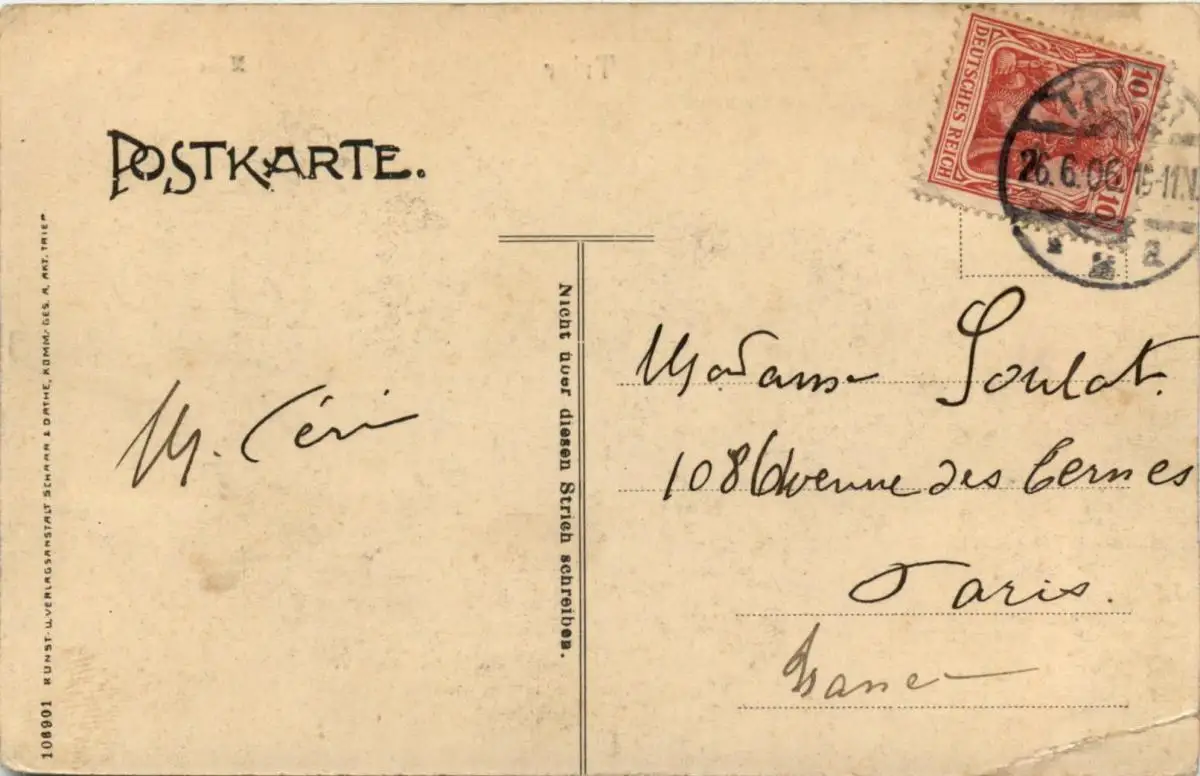 POSTKARTE.
DEUTSCHES REICH
10
10
26.6.06. 10-11V
a
Nicht über diesen Strich schreiben.
108901 KUNST- U. VERLAGSANSTALT SCHAAR & DATHE, KOMM.-GES. A. AKT. TRIER
M.
Madame Soulat.
108 Avenue des Ternes
Paris.
France